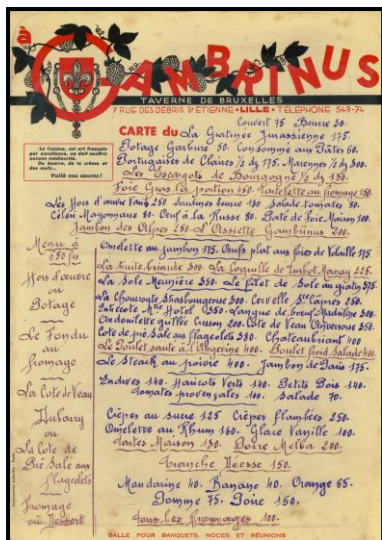 à
GAMBRINUS
TAVERNE DE BRUXELLES
7 RUE DES DÉBRIS St ÉTIENNE • LILLE • TÉLÉPHONE 549-74
Couvert 75 Beurre 50.
CARTE du La Gratinée Jurassienne 175.
La Cuisine, cet art français
par excellence, ne doit souffrir
aucune médiocrité.
Du beurre, de la crème et
des œufs...
Voilà nos sauces!
Potage Garbure 50. Consommé aux Pâtes 60.
Portugaises de Claires ½ dz 175. Marennes ½ dz 300.
Les Escargots de Bourgogne ½ dz 150.
Foie Gras la portion 450. Tartelette au fromage 150.
Les Hors d'œuvre Variés 250 Sardines beurre 180 Salade tomates 80.
Céleri Mayonnaise 80. Oeuf à la Russe 80. Pâté de Foie Maison 100.
Jambon des Alpes 250. L'Assiette Gambrinus 200.
Menu à
650 frs
Hors d'œuvre
ou
Potage
Le Fondu
au
fromage
La Côte de Veau
Dubarry
ou
La Côte de
Pré Salé aux
flageolets
fromage
ou Dessert
Omelette au jambon 175. Oeufs plat aux foies de Volaille 175
La truite briarde 300. La Coquille de Turbot Mornay 225.
La Sole Meunière 350. Le filet de Sole au gratin 375.
La Choucroute Strasbourgeoise 300. Cervelle aux Câpres 250.
Entrecôte Mtre Hôtel 350. Langue de bœuf Madère 300.
Andouillette grillée Cresson 200. Côte de Veau
Côte de pré Salé aux flageolets 380. Chateaubriant 400
Le Poulet sauté à l'Algérine 400. Poulet froid Salade 400.
Le Steack au poivre 400. Jambon de Paris 175.
Endives 140. Haricots Verts 140. Petits Pois 140.
Tomates provençales 100. Salade 70.
Crêpes au sucre 125 Crêpes flambées 250.
Omelette au Rhum 160. Glace Vanille 100.
Tartes Maison 150. Poire Melba 200.
Tranche 150.
Mandarine 40. Banane 40. Orange 65.
Pomme 75. Poire 150.
Tous les fromages 100.
SALLE POUR BANQUETS, NOCES ET RÉUNIONS